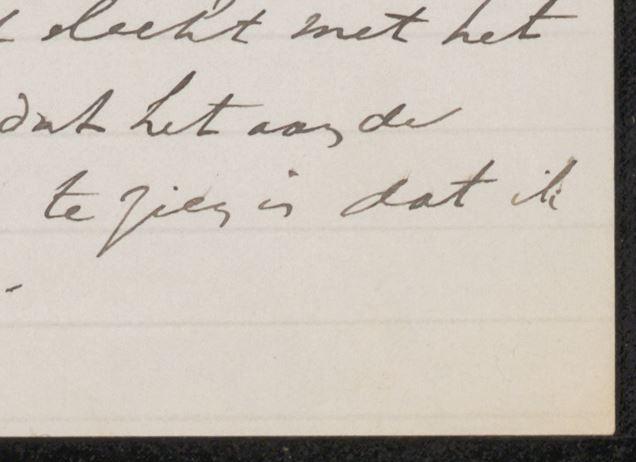 slecht met het
dat het aan de
te zien is dat ik